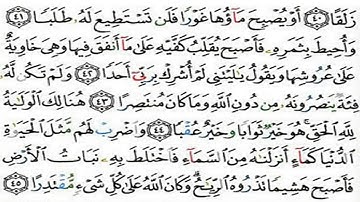 زَلَقًا ﴿٤٠﴾ أَوْ يُصْبِحَ مَآؤُهَا غَوْرًا فَلَن تَسْتَطِيعَ لَهُۥ طَلَبًا ﴿٤١﴾
وَأُحِيطَ بِثَمَرِهِۦ فَأَصْبَحَ يُقَلِّبُ كَفَّيْهِ عَلَىٰ مَآ أَنفَقَ فِيهَا وَهِىَ خَاوِيَةٌ
عَلَىٰ عُرُوشِهَا وَيَقُولُ يَٰلَيْتَنِى لَمْ أُشْرِكْ بِرَبِّىٓ أَحَدًا ﴿٤٢﴾ وَلَمْ تَكُن لَّهُۥ
فِئَةٌ يَنصُرُونَهُۥ مِن دُونِ ٱللَّهِ وَمَا كَانَ مُنتَصِرًا ﴿٤٣﴾ هُنَالِكَ ٱلْوَلَٰيَةُ
لِلَّهِ ٱلْحَقِّ ۚ هُوَ خَيْرٌ ثَوَابًا وَخَيْرٌ عُقْبًا ﴿٤٤﴾ وَٱضْرِبْ لَهُم مَّثَلَ ٱلْحَيَوٰةِ
ٱلدُّنْيَا كَمَآءٍ أَنزَلْنَٰهُ مِنَ ٱلسَّمَآءِ فَٱخْتَلَطَ بِهِۦ نَبَاتُ ٱلْأَرْضِ
فَأَصْبَحَ هَشِيمًا تَذْرُوهُ ٱلرِّيَٰحُ ۗ وَكَانَ ٱللَّهُ عَلَىٰ كُلِّ شَىْءٍ مُّقْتَدِرًا ﴿٤٥﴾